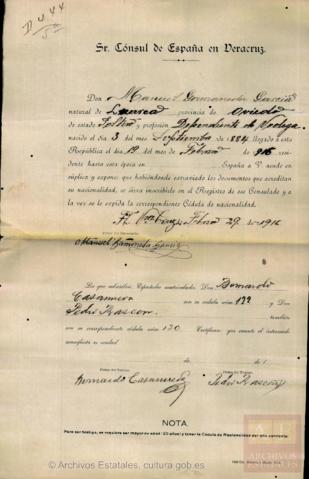 D U 44
Sr. Cónsul de España en Veracruz.
Don Manuel García
natural de Luarca provincia de Oviedo
de estado Soltero y profesión Dependiente de Bodega
nacido el día 3 del mes Septiembre de 1884 llegado á esta
República el día 12 del mes de Febrero de residente
hasta esta época en España á V. acude en
súplica y expone: que habiéndosele extraviado los documentos que acreditan
su nacionalidad, se sirva inscribirle en el Registro de ese Consulado y á
la vez se le expida la correspondiente Cédula de nacionalidad.
29 de 1916
Manuel García
Los que subscriben Españoles matriculados: Don Bernardo
Casanueva con su cédula núm 122 y Don
Pedro Rascon también
con su correspondiente cédula núm 130 Certifican: que cuanto el interesado
manifiesta es verdad
de de 1
Bernardo Casanueva Pedro Rascon
NOTA.
Para ser testigo, se requiere ser mayor de edad (23 años) y tener la Cédula de Nacionalidad del año corriente.
ARCHIVOS
© Archivos Estatales, cultura.gob.es